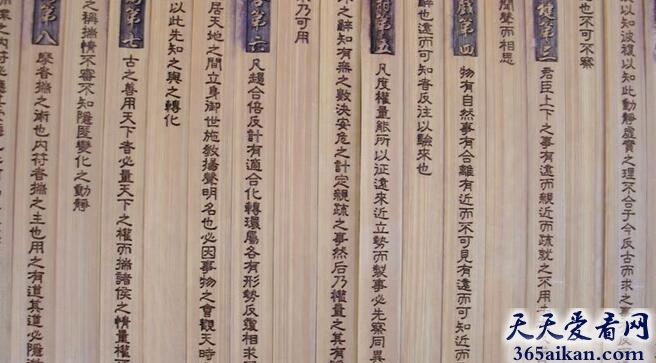 以知彼覆以知此動靜虛實之理不合于今反古而求之事
也不可不察
楗第三
君臣上下之事有遠而親近而疏就之不用
聞聲而相思
戲第四
物有自然事有合離有近而不可見有遠而可知近而
辭也遠而可知者反往以驗來也
第五
凡度權量能所以征遠來近立勢而製事必先察同異
之辭知有無之數決安危之計定親疏之事然后乃權量之其有
乃可用
第六
凡趨合倍反計有適合化轉環屬各有形勢反覆相求
居天地之間立身御世施教揚聲明名也必因事物之會觀天時
以此先知之與之轉化
第七
古之善用天下者必量天下之權而揣諸侯之情量權
之稱揣情不審不知隱匿變化之動靜
第八
摩者揣之術也内符者揣之主也用之有道其道必隱
天天爱看网
365aikan.com